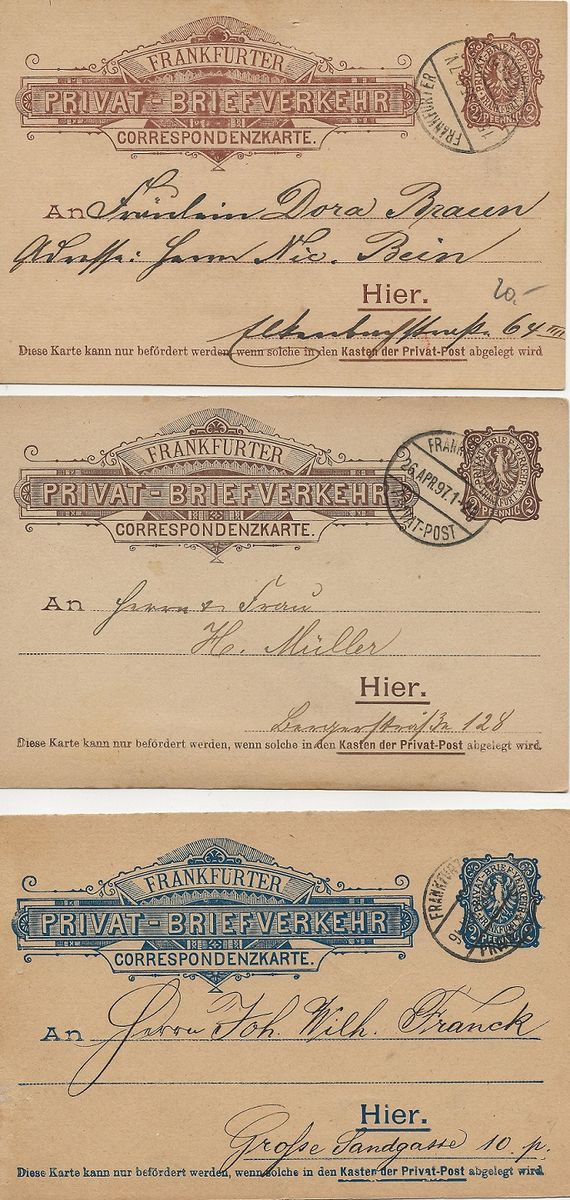 FRANKFURTER
PRIVAT-BRIEFVERKEHR
CORRESPONDENZKARTE.
FRANKFURTER
2 PFENNIG 2
An Fräulein Dora Braun
Adresse: Herrn Nic. Bein
Hier. 20,-
64 III
Diese Karte kann nur befördert werden, wenn solche in den Kasten der Privat-Post abgelegt wird
FRANKFURTER
PRIVAT-BRIEFVERKEHR
CORRESPONDENZKARTE.
26.APR.97.1-
PRIVAT-POST
PRIVAT-BRIEFVERKEHR
2 PFENNIG 2
An Herrn & Frau
H. Müller
Hier.
Bergerstraße 128
Diese Karte kann nur befördert werden, wenn solche in den Kasten der Privat-Post abgelegt wird.
FRANKFURTER
PRIVAT-BRIEFVERKEHR
CORRESPONDENZKARTE.
PRIVAT-BRIEFVERKEHR
An Herrn Joh. Wilh. Franck
Hier.
Große Sandgasse 10. p.
Diese Karte kann nur befördert werden, wenn solche in den Kasten der Privat-Post abgelegt wird.